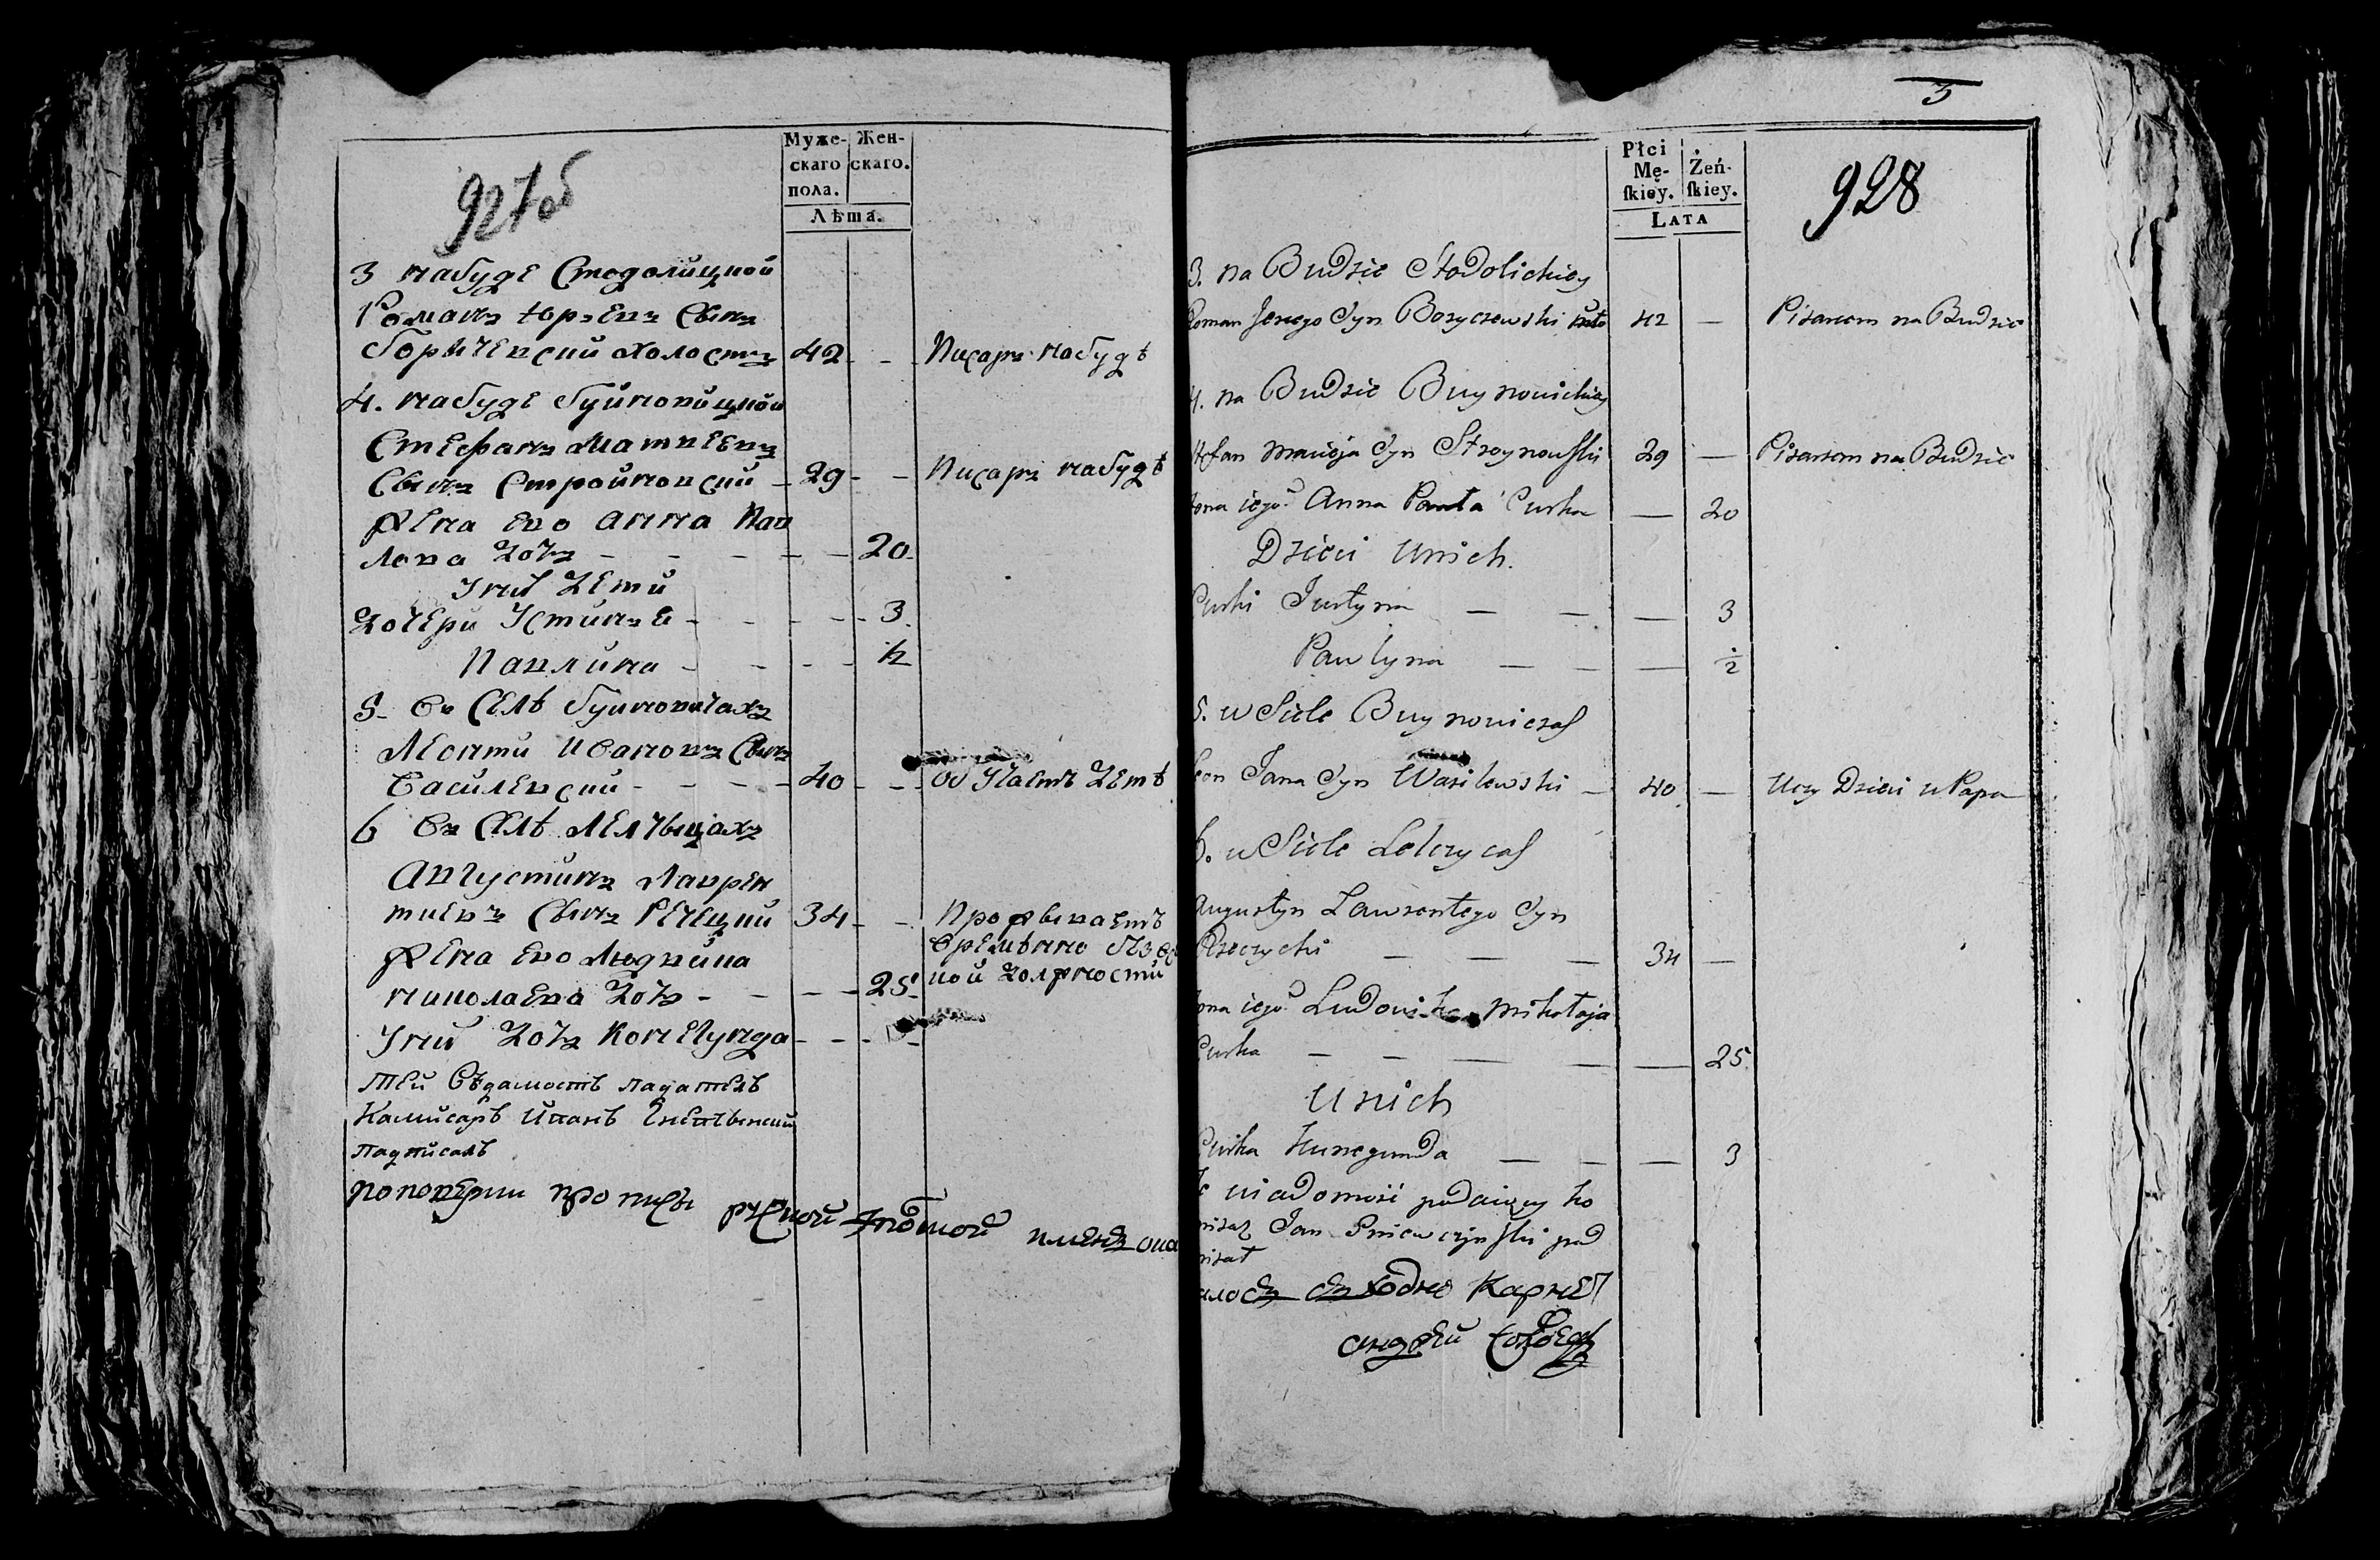 927об
Муже-
скаго
пола.
Жен-
скаго.
Лѣта.
3 на буде Стодолицкой
Романъ Юрэевъ Сынъ
Борычевский холостъ 42 - - Писаръ на будѣ
4. на буде Буйновицкой
Стефанъ Матвеевъ
Сынъ Стройновский - 29 - - Писаръ на будѣ
Жена ево Анна Пав
лова дочъ - - - - - 20
У них дети
дочери Устинъя - - - - 3
Павлина - - - - ½
5. Въ Селѣ Буйновичахъ
Леонти Ивановъ Сынъ
Василевский - - - - 40 - - обучаетъ детѣ
6 Въ Селѣ Лелчыцахъ
Августинъ Лаврен
тиевъ Сынъ Речецкий 34 - - Прожываетъ
Жена ево Людвика
временно без вся
николаева дочъ - - - - 25
кой должности
У них дочъ Конегунда - - - -
Тей Вѣдамость падатель
Камисаръ Иванъ
падписалъ
3
Płci
Mę-
ſkiey.
Żeń-
ſkiey.
LATA
928
3. na Budzie Stodolickiey
Roman Jerzego Syn Boryczewski 42 — Pisarzem na Budzie
4. na Budzie Buynowickiey
Stefan Macieja Syn Stroynowſki 29 — Pisarzem na Budzie
żona iego Anna Pawła Curka — 20
Dzieci Unich.
Curki Justyna — — — 3
Pawlyna — — — ½
5. w Siele Buynowiczaſ
Leon Jana Syn Wasilewski — 40 — Uczy Dzieci u Popa
6. w Siele Lelczycaſ
Augustyn Lawrentego Syn
Rzeczycki — — — 34 —
żona iego Ludowika Mikołaja
Curka — — — — — 25
Unich
Curka Kunegunda — — — 3
Tę wiadomość podaiący ko
misarz Jan Pniewczynſki pod
pisał